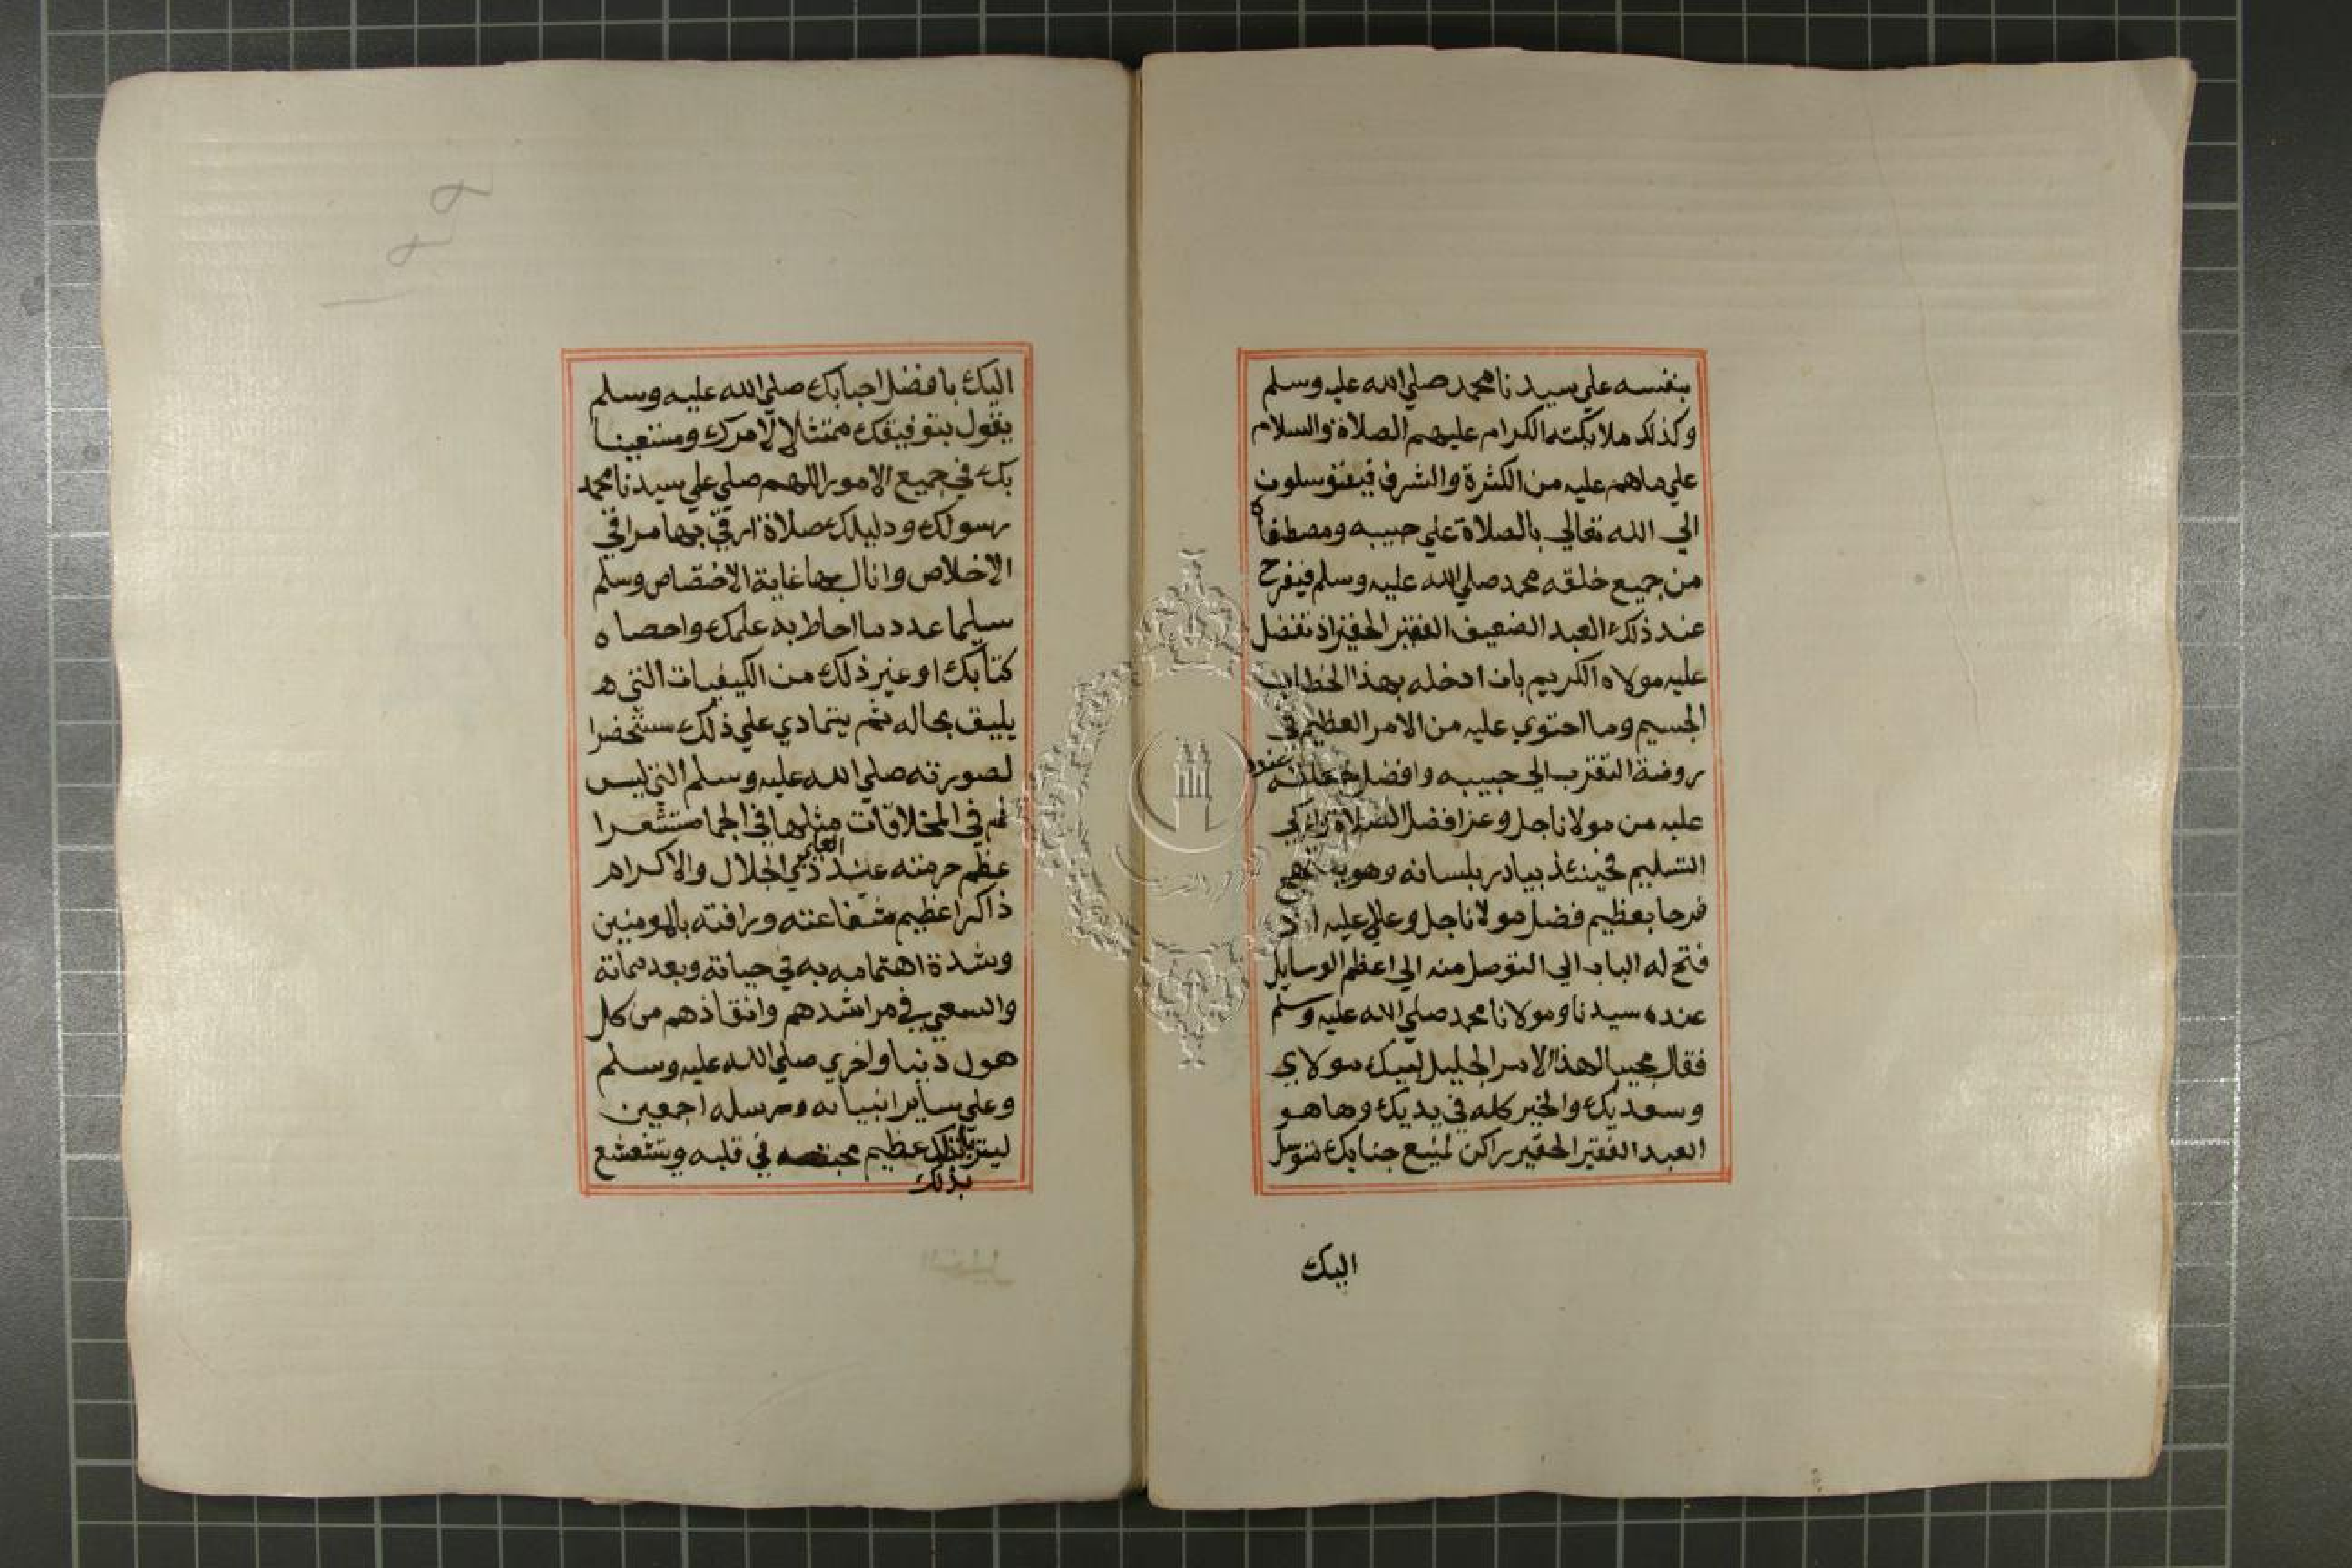 بنفسه علي سيدنا محمد صلي الله عليه وسلم
وكذلك ملايكته الكرام عليهم الصلاة والسلام
علي ماهم عليه من الكثرة والشرف فيتوسلون
الي الله تعالي بالصلاة علي حبيبه ومصطفاه
من جميع خلقه محمد صلي الله عليه وسلم فيفرح
عند ذلك العبد الضعيف الفقير الحقير اذ تفضل
عليه مولاه الكريم بان ادخله بهذا الخطاب
الجسيم وما احتوي عليه من الامر العظيم في
روضة التقرب الي حبيبه وافضل خلقه عنده
عليه من مولانا جل وعز افضل الصلاة وازكي
التسليم فحينئذ يبادر بلسانه وهو
فرحا بعظيم فضل مولانا جل وعلا عليه اذ
فتح له الباب الي التوصل منه الي اعظم الوسايل
عنده سيدنا ومولانا محمد صلي الله عليه وسلم
فقال مجيبا لهذا الامر الجليل لبيك مولاي
وسعديك والخير كله في يديك وها هو
العبد الفقير الحقير راكن لمنيع جنابك متوسل
اليك
اليك بافضل احبابك صلي الله عليه وسلم
يقول بتوفيقك ممتثلا لامرك ومستعينا
بك في جميع الامور اللهم صلي علي سيدنا محمد
رسولك ودليلك صلاة ارقي بها مراقي
الاخلاص وانال بها غاية الاختصاص وسلم
تسليما عدد ما احاط به علمك واحصاه
كتابك او غير ذلك من الكيفيات التي ه
يليق بحاله ثم يتمادي علي ذلك مستحضرا
لصورته صلي الله عليه وسلم التي ليس
ثم في المخلاقات مثلها في الجما مستشعرا
عظم حرمته عند العلي ذي الجلال والاكرام
ذاكرا عظيم شفاعته ورافته بالمومنين
وشدة اهتمامه به في حياته وبعد مماته
والسعي في مراشدهم وانقاذهم من كل
هول دنيا واخري صلي الله عليه وسلم
وعلي ساير انبيايه ورسله اجمعين
ليتربا بذلك عظيم محبته في قلبه وتتشعشع
بذلك